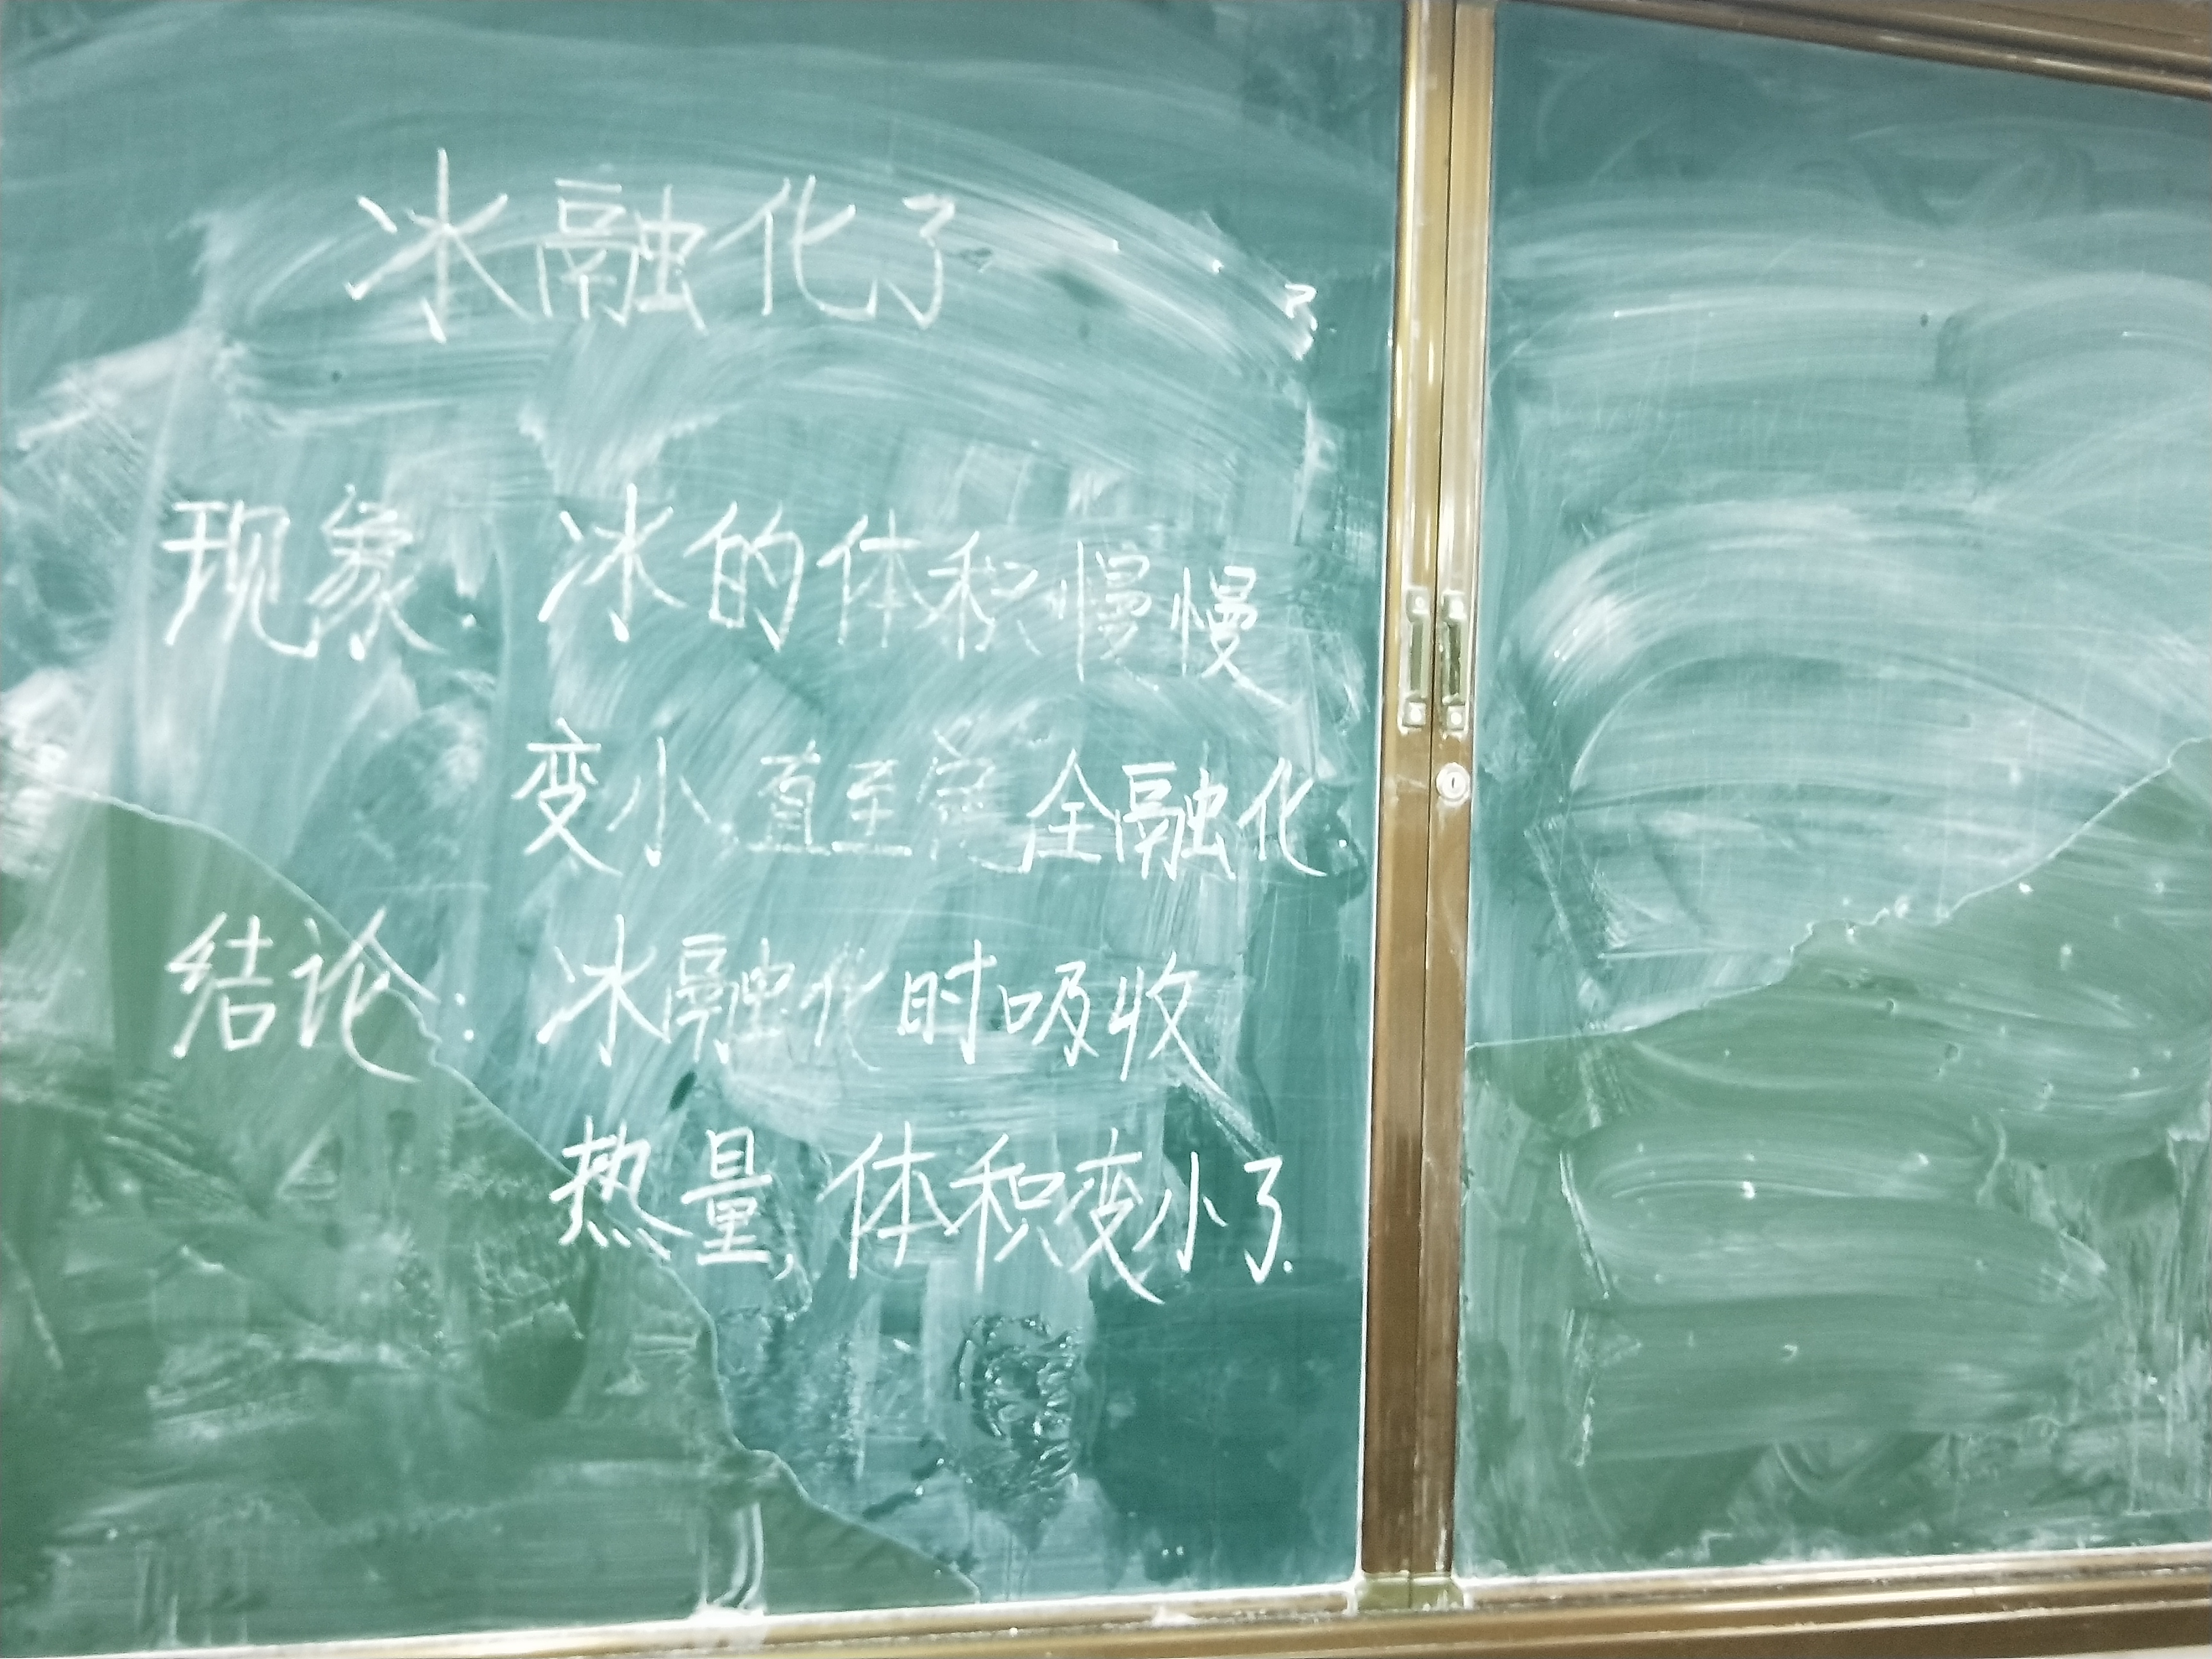 冰融化了
现象:冰的体积慢慢
变小直至完全融化
结论:冰融化时吸收
热量,体积变小了.